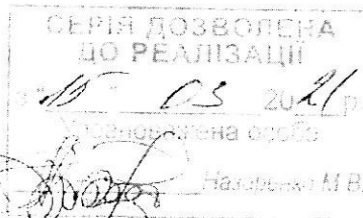 СЕРІЯ ДОЗВОЛЕНА
ДО РЕАЛІЗАЦІЇ
з "15" 03 2021 р
Уповноважена особа
М В